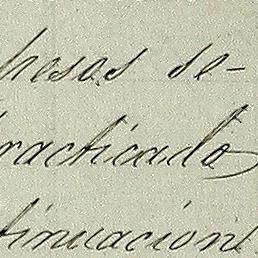 pesos se-
practicado
tinuacion